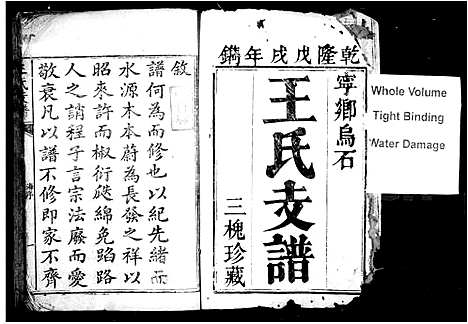 乾隆戊戌年鐫
寧鄉烏石
王氏支譜
三槐珍藏
Whole Volume
Tight Binding
Water Damage
敘
譜何為而修也以紀先緒而
水源木本蔚為長發之祥以
昭來許而椒衍瓞綿免蹈路
人之誚程子言宗法廢而愛
敬衰凡以譜不修即家不齊